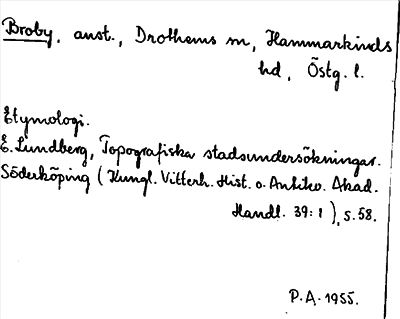 Broby, anst., Drothems sn, Hammarkinds
hd, Östg. l.
Etymologi.
E. Lundberg, Topografiska stadsundersökningar.
Söderköping (Kungl. Vitterh. Hist. o. Antikv. Akad.
Handl. 39:1), s. 58.
P.A. 1955.